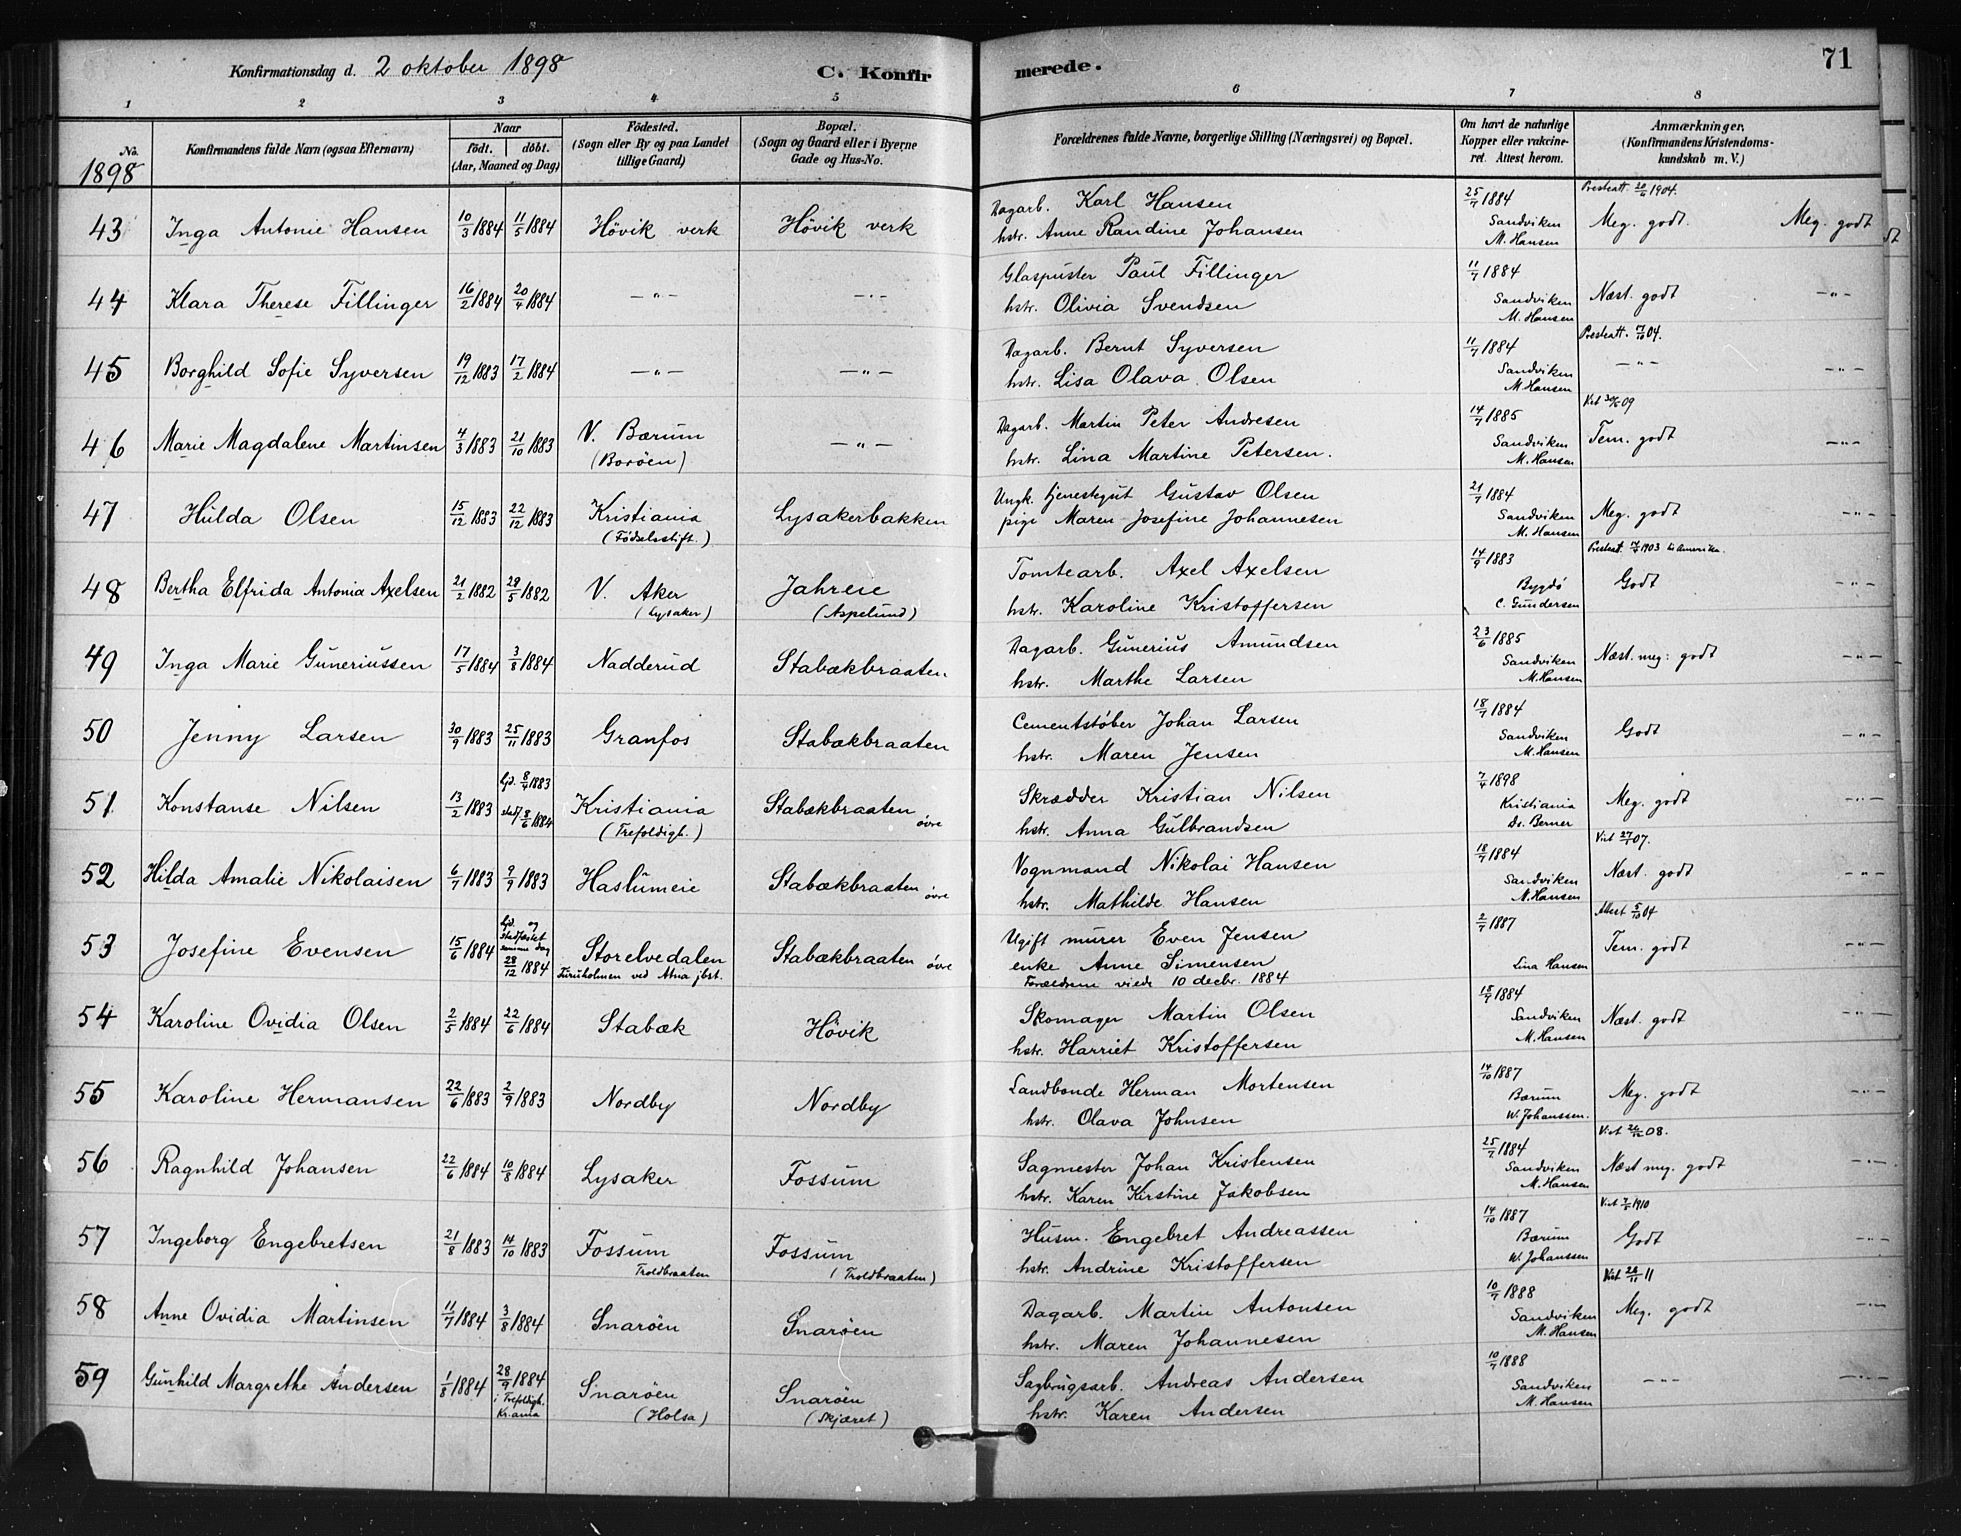 Konfirmationsdag d. 2 oktober 1898
C. Konfirmerede.
71
1 2 3 4 5 6 7 8
No. 1898
Konfirmandens fulde Navn (ogsaa Efternavn)
Naar
födt. döbt.
(Aar, Maaned og Dag)
Födested.
(Sogn eller By og paa Landet
tillige Gaard)
Bopæl.
(Sogn og Gaard eller i Byerne
Gade og Hus-No.
Forældrenes fulde Navne, borgerlige Stilling (Næringsvei) og Bopæl.
Om havt de naturlige
Kopper eller vakcine-
ret. Attest herom.
Anmærkninger.
(Konfirmandens Kristendoms-
kundskab m. V.)
43 Inga Antonie Hansen 10/3 1884 11/5 1884 Hövik verk Hövik verk
Dagarb. Karl Hansen
hstr. Anne Randine Johansen
25/7 1884
Sandviken
M. Hansen
Presteatt. 20/4 1904.
Meg. godt. Meg. godt
44 Klara Therese Fillinger 16/2 1884 20/4 1884 — „ — — „ —
Glaspuster Paul Fillinger
hstr. Olivia Svendsen
11/7 1884
Sandviken
M. Hansen
Næst. godt — „ —
45 Borghild Sofie Syversen 19/12 1883 17/2 1884 — „ — — „ —
Dagarb. Bernt Syversen
hstr. Lisa Olava Olsen
11/7 1884
Sandviken
M. Hansen
Presteatt. 7/10 04.
— „ — — „ —
46 Marie Magdalene Martinsen 4/3 1883 21/10 1883 V. Bærum
(Boröen) — „ —
Dagarb. Martin Peter Andresen
hstr. Lina Martine Petersen.
14/7 1885
Sandviken
M. Hansen
Tem. godt — „ —
47 Hulda Olsen 15/12 1883 22/12 1883 Kristiania
(Födselsstift.) Lysakerbakken
Ungk. tjenestegut Gustav Olsen
pige Maren Josefine Johannesen
21/7 1884
Sandviken
M. Hansen
Meg. godt — „ —
48 Bertha Elfrida Antonia Axelsen 21/2 1882 28/5 1882 V. Aker
(Lysaker) Jahreie
(Aspelund)
Tomtearb. Axel Axelsen
hstr. Karoline Kristoffersen
14/9 1883
Bygdö
C. Gundersen
Presteatt. 1903 til Amerika.
Godt — „ —
49 Inga Marie Guneriussen 17/5 1884 3/8 1884 Nadderud Stabækbraaten
Dagarb. Gunerius Amundsen
hstr. Marthe Larsen
23/6 1885
Sandviken
M. Hansen
Næst. meg: godt — „ —
50 Jenny Larsen 30/9 1883 25/11 1883 Granfos Stabækbraaten
Cementstöber Johan Larsen
hstr. Maren Jensen
18/7 1884
Sandviken
M. Hansen
Godt — „ —
51 Konstanse Nilsen 13/2 1883 hjd. 8/4 1883
stadf. 8/6 1884 Kristiania
(Trefoldigh.) Stabækbraaten
övre
Skrædder Kristian Nilsen
hstr. Anna Gulbrandsen
7/4 1898
Kristiania
Dr. Berner
Meg. godt — „ —
52 Hilda Amalie Nikolaisen 6/7 1883 9/9 1883 Haslumeie Stabækbraaten
övre
Vognmand Nikolai Hansen
hstr. Mathilde Hansen
18/7 1884
Sandviken
M. Hansen
Viet 27/1 07.
Næst. godt — „ —
53 Josefine Evensen 15/6 1884 hjd. og
stadfæstet
samme dag
28/12 1884 Storelvedalen
Furuholmen ved Atna jbst. Stabækbraaten övre
Ugift murer Even Jensen
enke Anne Simensen
Forældrene viede 10 decbr. 1884
2/7 1887
Lina Hansen
Attest 5/10 04
Tem. godt — „ —
54 Karoline Ovidia Olsen 2/5 1884 22/6 1884 Stabæk Hövik
Skomager Martin Olsen
hstr. Harriet Kristoffersen
18/7 1884
Sandviken
M. Hansen
Næst. godt — „ —
55 Karoline Hermansen 22/6 1883 2/9 1883 Nordby Nordby
Landbonde Herman Mortensen
hstr. Olava Johnsen
14/10 1887
Bærum
W. Johanssen.
Meg. godt — „ —
56 Ragnhild Johansen 22/6 1884 10/8 1884 Lysaker Fossum
Sagmester Johan Kristensen
hstr. Karen Kirstine Jakobsen
25/7 1884
Sandviken
M. Hansen
Næst meg. godt — „ —
57 Ingeborg Engebretsen 21/8 1883 14/10 1883 Fossum
Troldbraaten Fossum
(Troldbraaten)
Husm. Engebret Andreassen
hstr. Andrine Kristoffersen
14/10 1887
Bærum
W. Johanssen
Viet 7/5 1910
Godt — „ —
58 Anne Ovidia Martinsen 11/7 1884 3/8 1884 Snaröen Snaröen
Dagarb. Martin Antonsen
hstr. Maren Johannesen
10/7 1888
Sandviken
M. Hansen
Meg. godt — „ —
59 Gunhild Margrethe Andersen 1/8 1884 28/9 1884
i Trefoldigh.
Kr.ania Snaröen
(Holsa) Snaröen
(Skjæret)
Sagbrugsarb. Andreas Andersen
hstr. Karen Andersen
10/7 1888
Sandviken
M. Hansen
— „ — — „ —